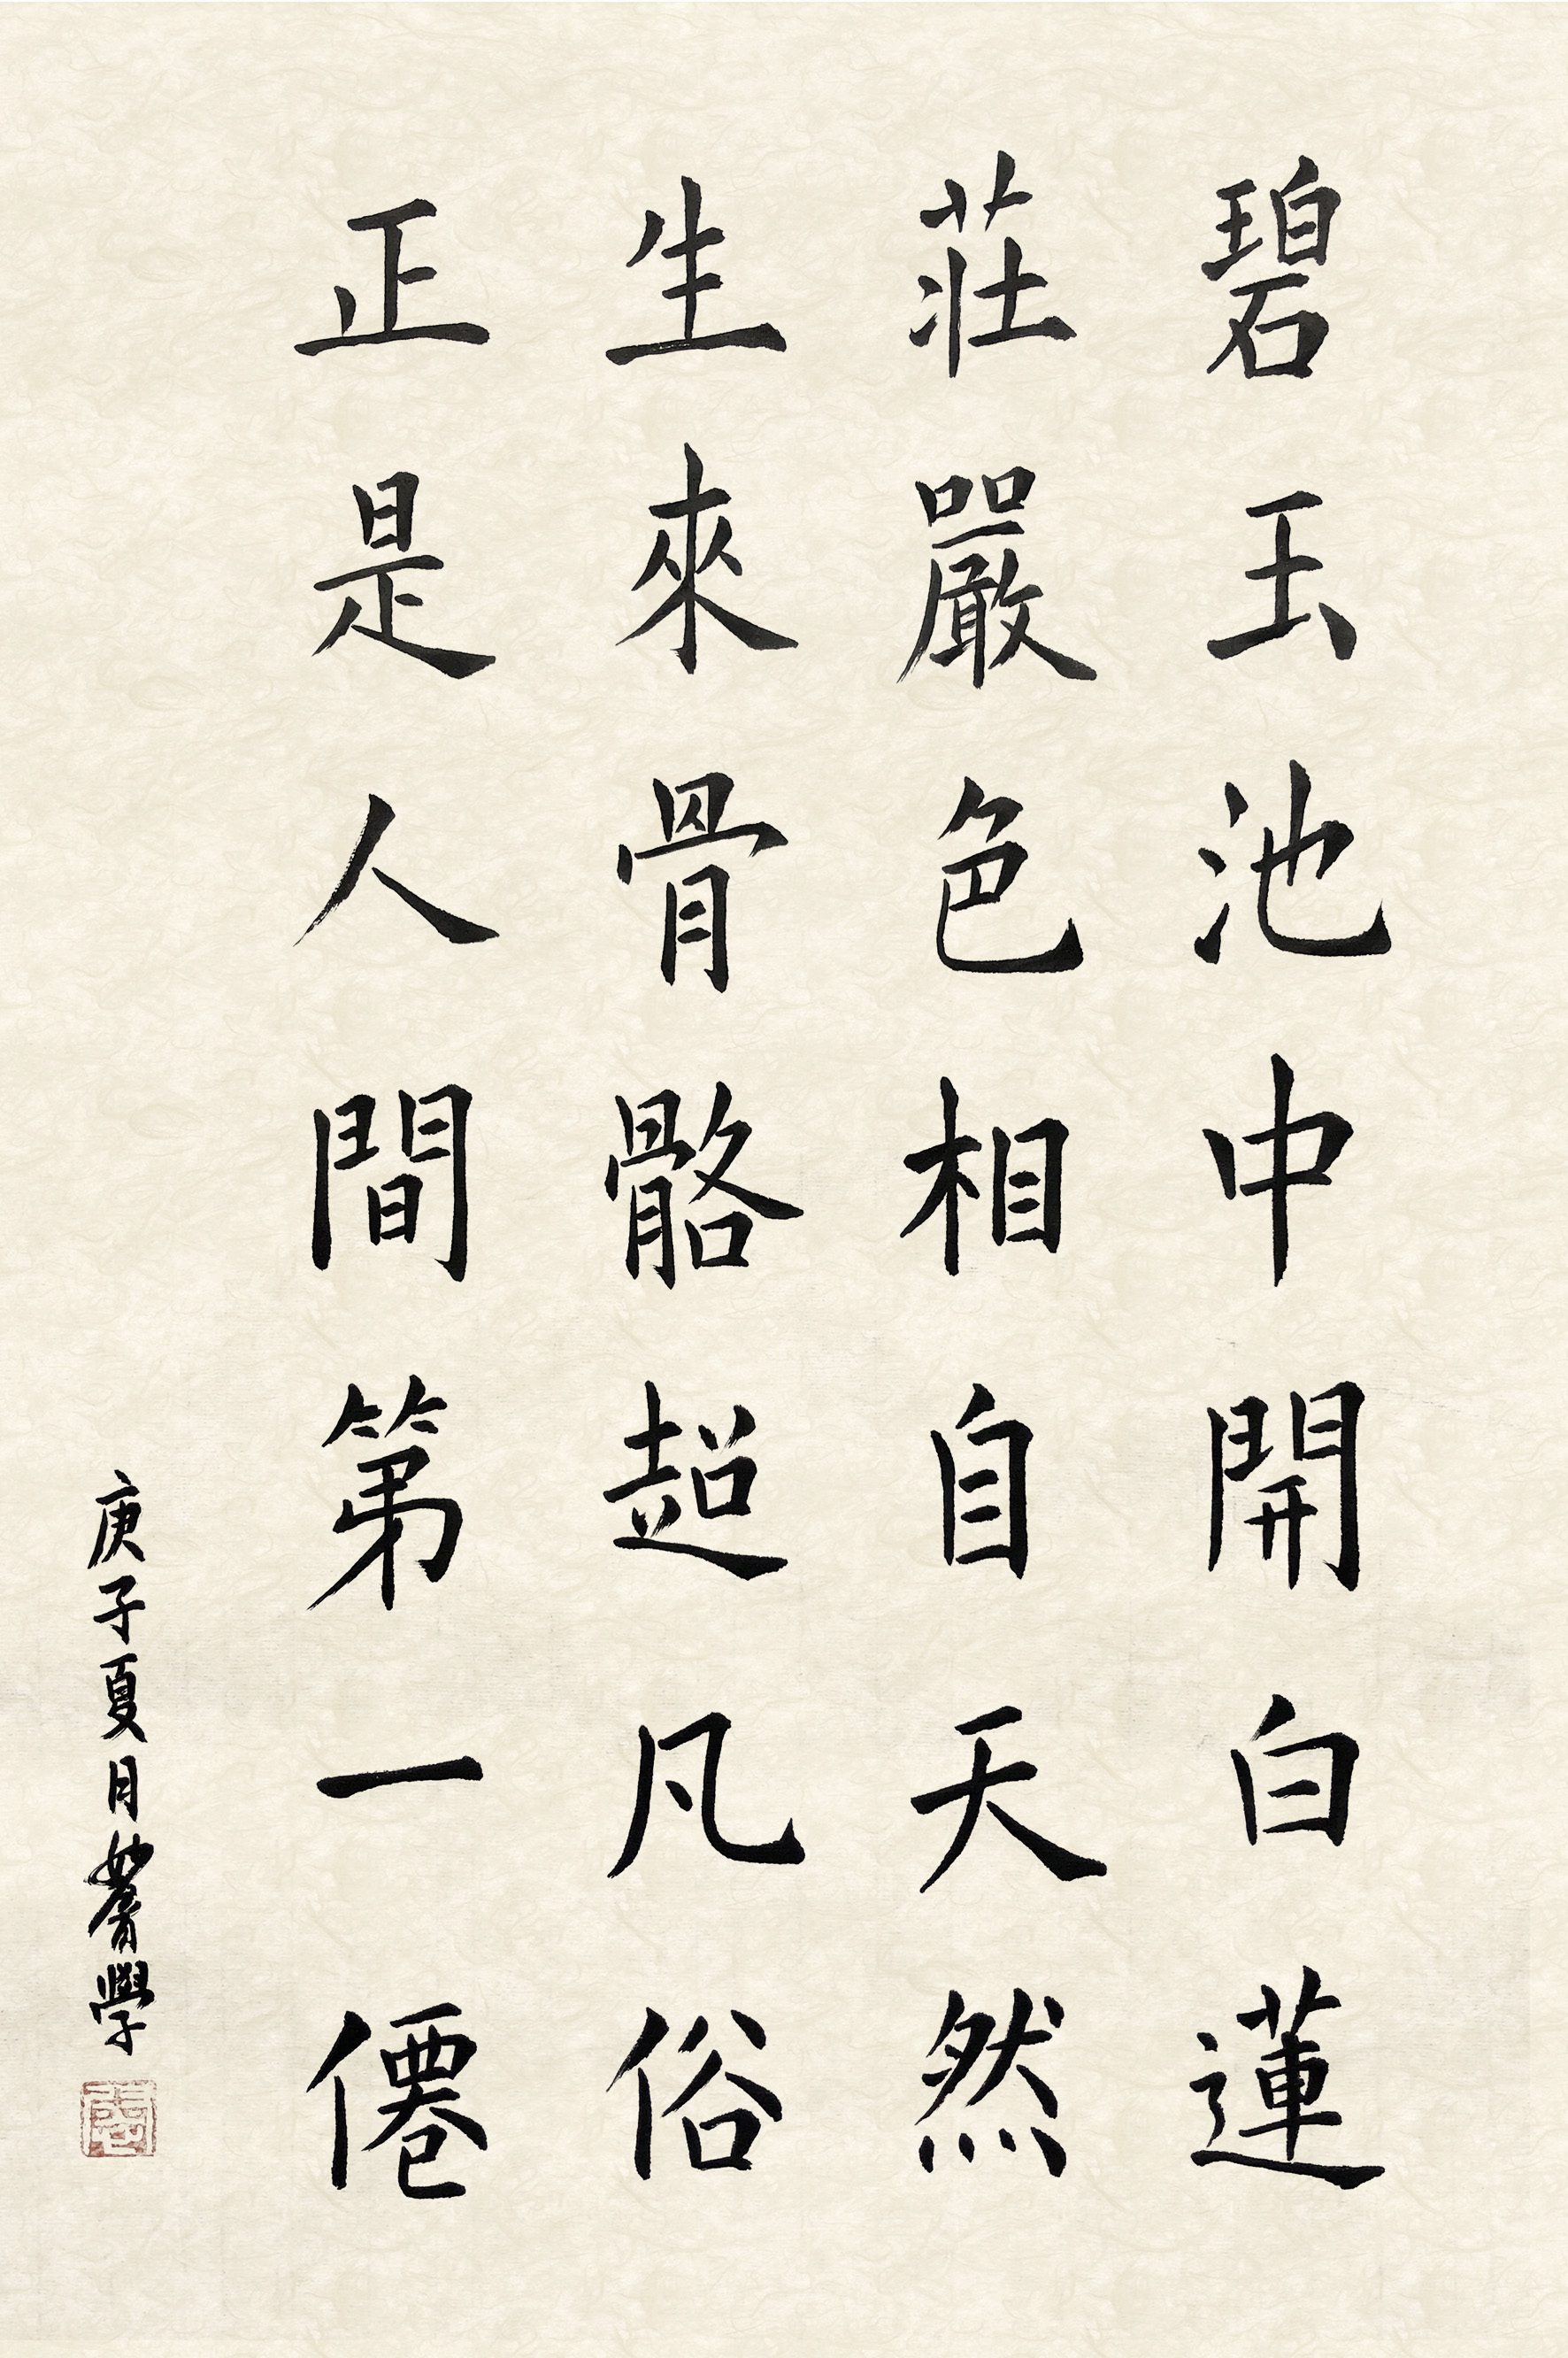 碧玉池中開白蓮
莊嚴色相自天然
生來骨骼超凡俗
正是人間第一僊
庚子夏月
學